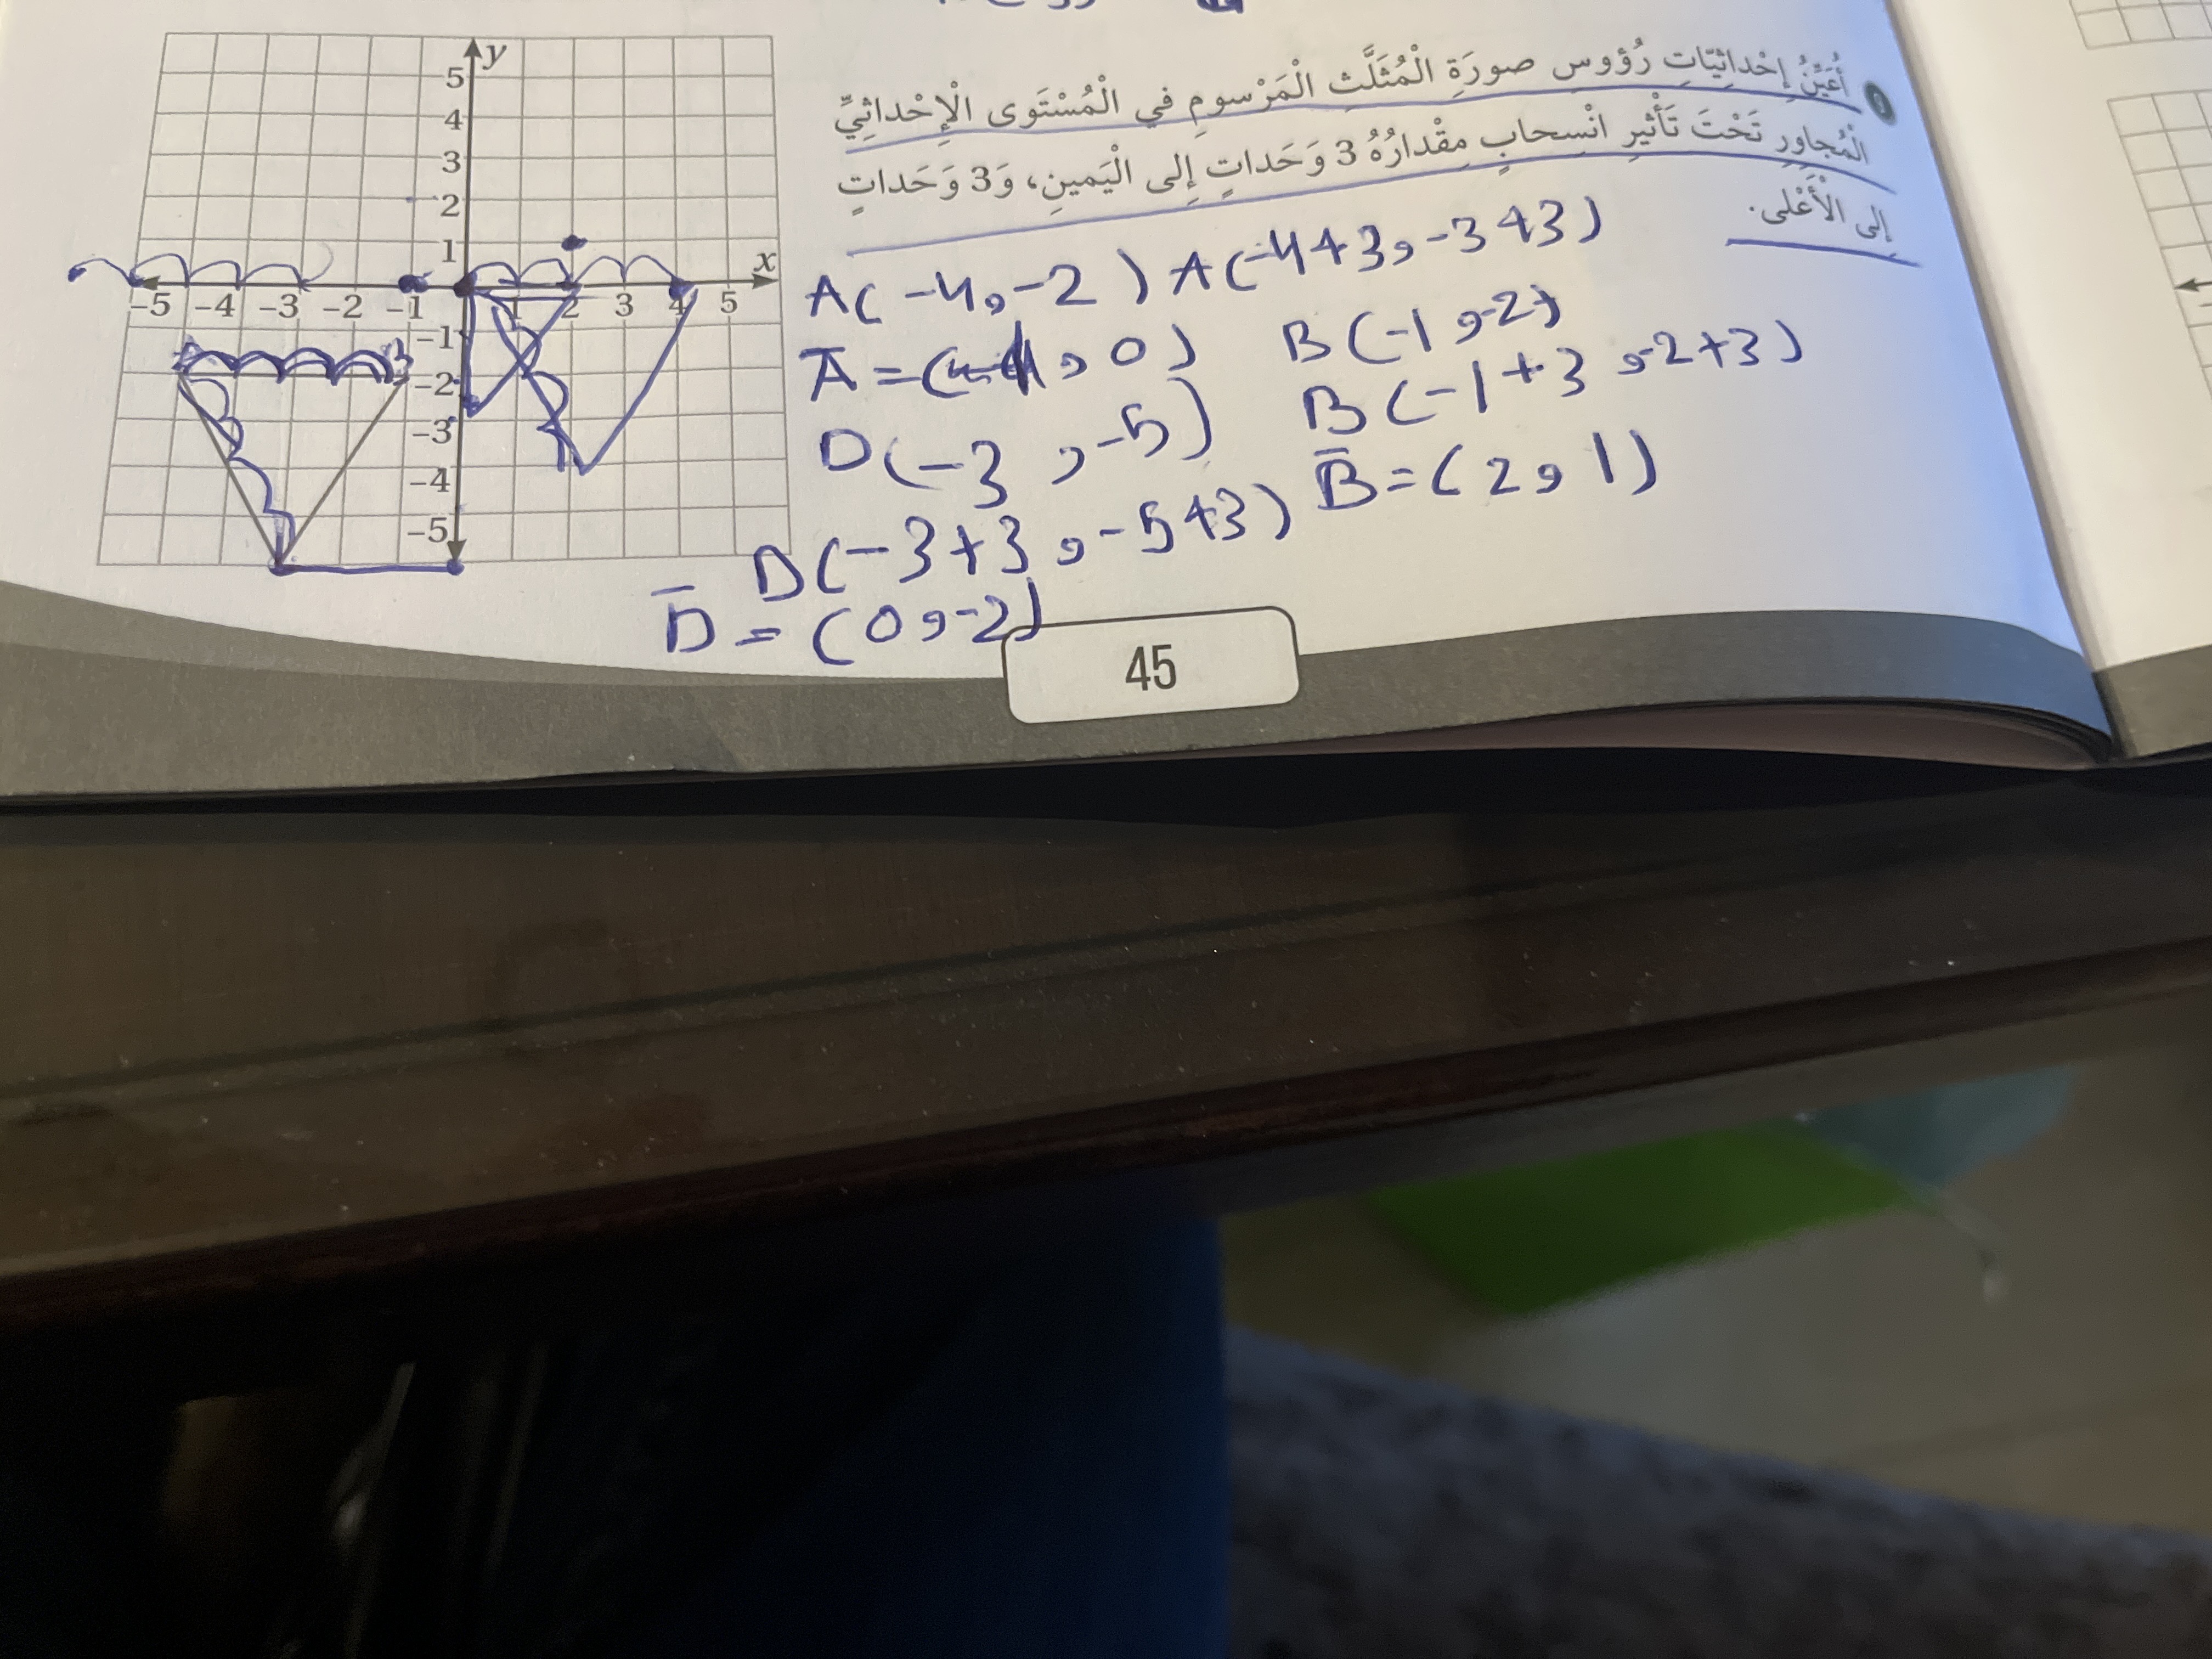 أُعَيِّنُ إِحْداثِيّاتِ رُؤوسِ صورَةِ الْمُثَلَّثِ الْمَرْسومِ في الْمُسْتَوى الْإِحْداثِيِّ
الْمُجاوِرِ تَحْتَ تَأْثيرِ انْسِحابٍ مِقْدارُهُ 3 وَحَداتٍ إِلى الْيَمينِ، وَ3 وَحَداتٍ
إِلى الْأَعْلى.
y
5
4
3
2
1
x
-5 -4 -3 -2 -1 1 2 3 4 5
-1
-2
-3
-4
-5
A(-4,-2) A(-4+3,-3+3)
A̅ = ( , 0) B(-1,-2)
D(-3,-5) B(-1+3,-2+3)
D(-3+3,-5+3) B̅=(2,1)
D̅ = (0,-2)
45